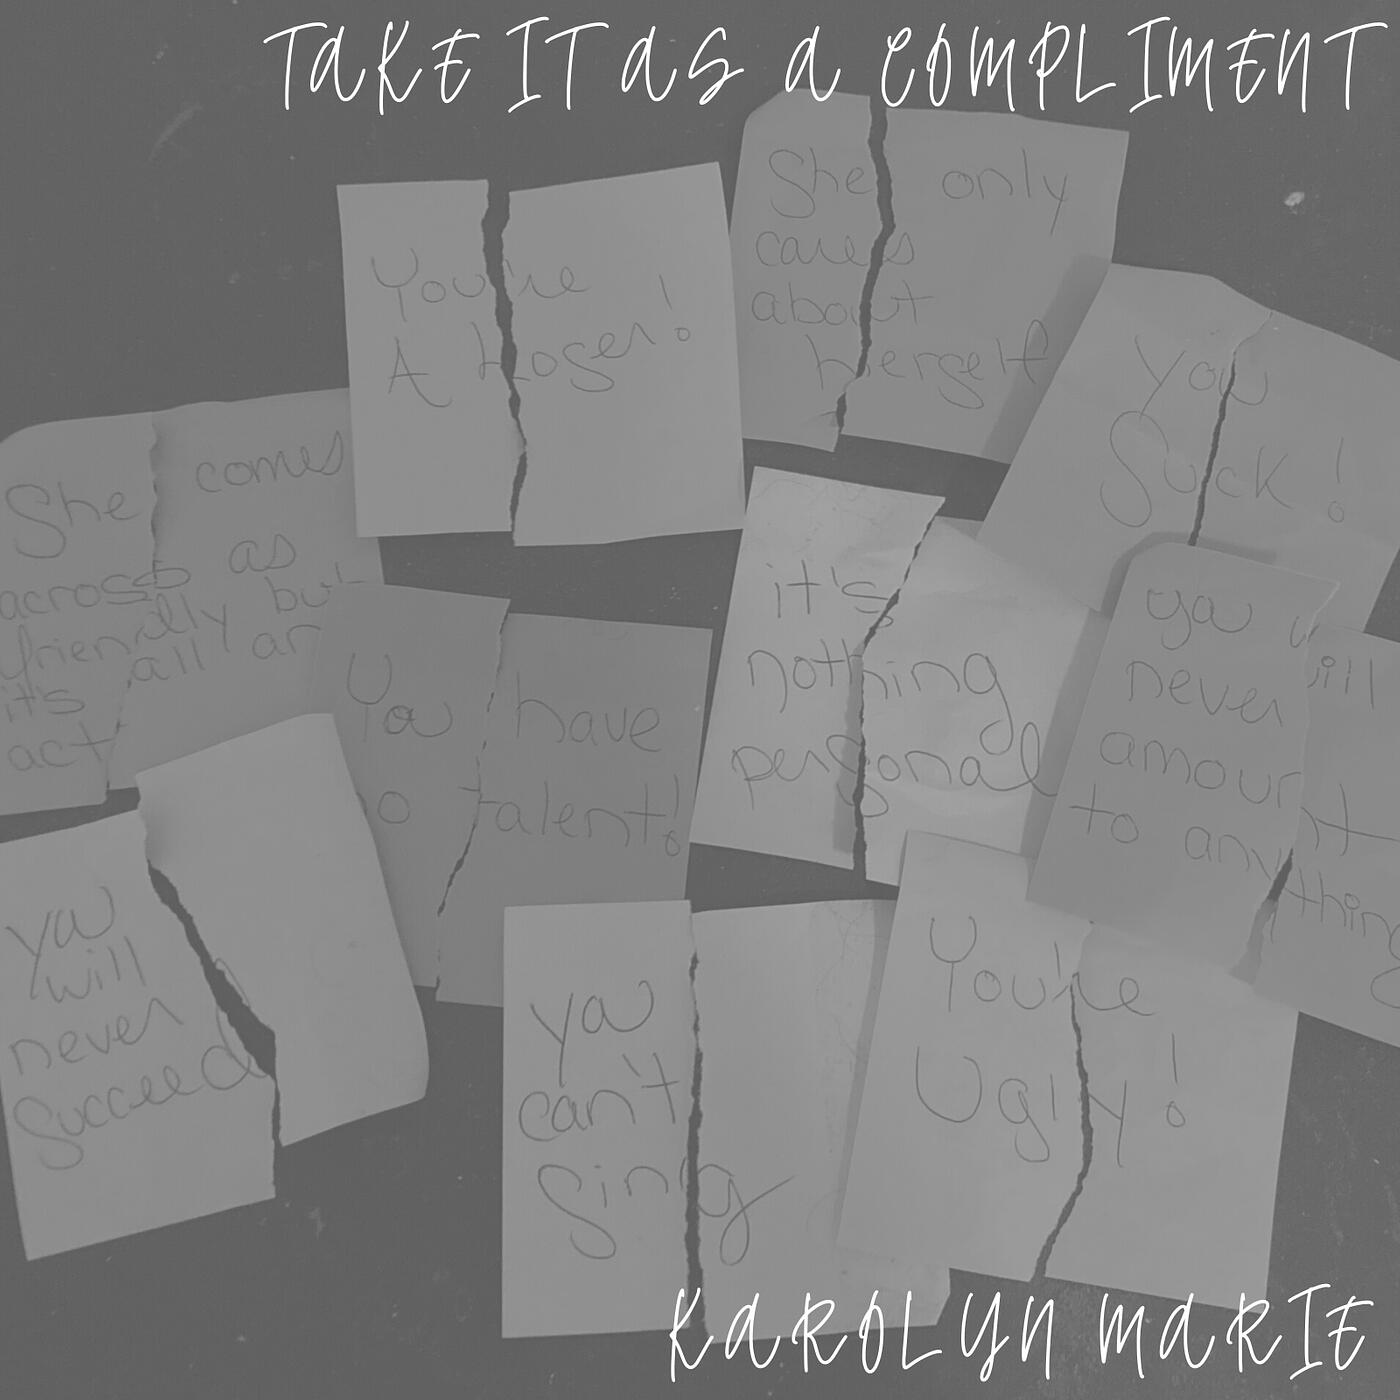 TAKE IT AS A COMPLIMENT
She only
cares
about
herself
You're
A Loser!
You
Suck!
She comes
across as
friendly but
it's all an
act
it's
nothing
personal
ya will
never
amount
to anything
Ya have
no talent!
ya
will
never
succeed
ya
can't
Sing
You're
Ugly!
KAROLYN MARIE